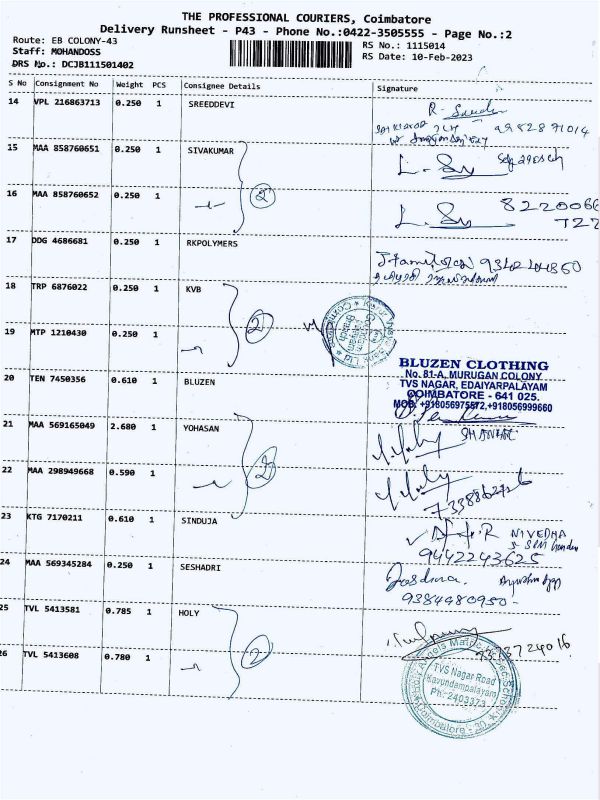 THE PROFESSIONAL COURIERS, Coimbatore
Delivery Runsheet - P43 - Phone No.:0422-3505555 - Page No.:2
Route: EB COLONY-43
Staff: MOHANDOSS
DRS No.: DCJB111501402
RS No.: 1115014
RS Date: 10-Feb-2023
S No Consignment No Weight PCS Consignee Details Signature
14 VPL 216863713 0.250 1 SREEDDEVI
9952871014
15 MAA 858760651 0.250 1 SIVAKUMAR
16 MAA 858760652 0.250 1
2
8220066
722
17 DDG 4686681 0.250 1 RKPOLYMERS
18 TRP 6876022 0.250 1 KVB
2
19 MTP 1210430 0.250 1
BLUZEN CLOTHING
No. 81-A, MURUGAN COLONY
TVS NAGAR, EDAIYARPALAYAM
COIMBATORE - 641 025.
MOB: +918056975572,+918056999660
20 TEN 7450356 0.610 1 BLUZEN
21 MAA 569165049 2.680 1 YOHASAN
2
22 MAA 298949668 0.590 1
23 KTG 7170211 0.610 1 SINDUJA
NIVEDHA
9442243625
24 MAA 569345284 0.250 1 SESHADRI
9384480950-
25 TVL 5413581 0.785 1 HOLY
2
26 TVL 5413608 0.780 1
TVS Nagar Road
Kavundampalayam
Ph: 2403373
Coimbatore - 30